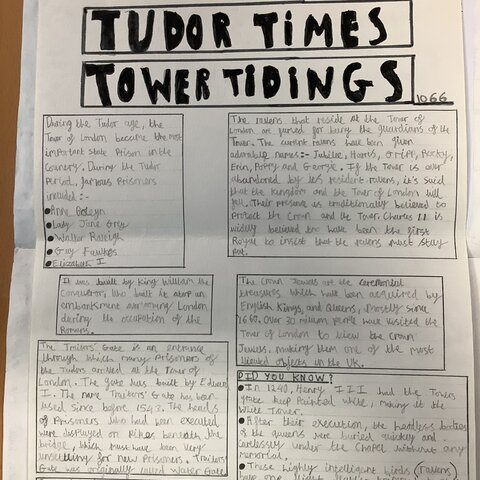 TUDOR TIMES
TOWER TIDINGS
1066
During the Tudor age, the
Tower of London became the most
important state Prison in the
Country. During the Tudor
Period, famous Prisoners
included :-
Anne Boleyn
Lady Jane Grey
Walter Raleigh
Guy Fawkes
Elizabeth I
The ravens that reside at the Tower of
London are famed for being the guardians of the
Tower. The current ravens have been given
adorable names:- Jubilee, Harris, Gripp, Rocky,
Erin, Poppy and George. If the Tower is ever
abandoned by its resident ravens, it's said
that the Kingdom and the Tower of London will
fall. Their presence is traditionally believed to
Protect the Crown and the Tower Charles II is
widely believed to have been the first
Royal to insist that the ravens must stay
put.
It was built by King William the
Conqueror, who built it atop an
embankment surrounding London
during the occupation of the
Romans.
The Crown Jewels are the ceremonial
treasures which have been acquired by
English Kings, and Queens, mostly since
1660. Over 30 million people have visited the
Tower of London to view the Crown
Jewels, making them one of the most
viewed objects in the UK.
The Traitors' Gate is an entrance
through which many Prisoners of
the Tudors arrived at the Tower of
London. The gate was built by Edward
I. The name Traitors' Gate has been
used since before 1543. The heads
of Prisoners who had been executed
were displayed on Pikes beneath the
bridge, which must have been very
unsettling for new Prisoners. Traitors'
Gate was originally called Water Gate
DID YOU KNOW?
In 1240, Henry III had the Towers
keep Painted white, making it the
White Tower.
After their execution, the headless bodies
of the queens were buried quickly and
carelessly under the Chapel without any
memorial.
These highly intelligent birds (ravens